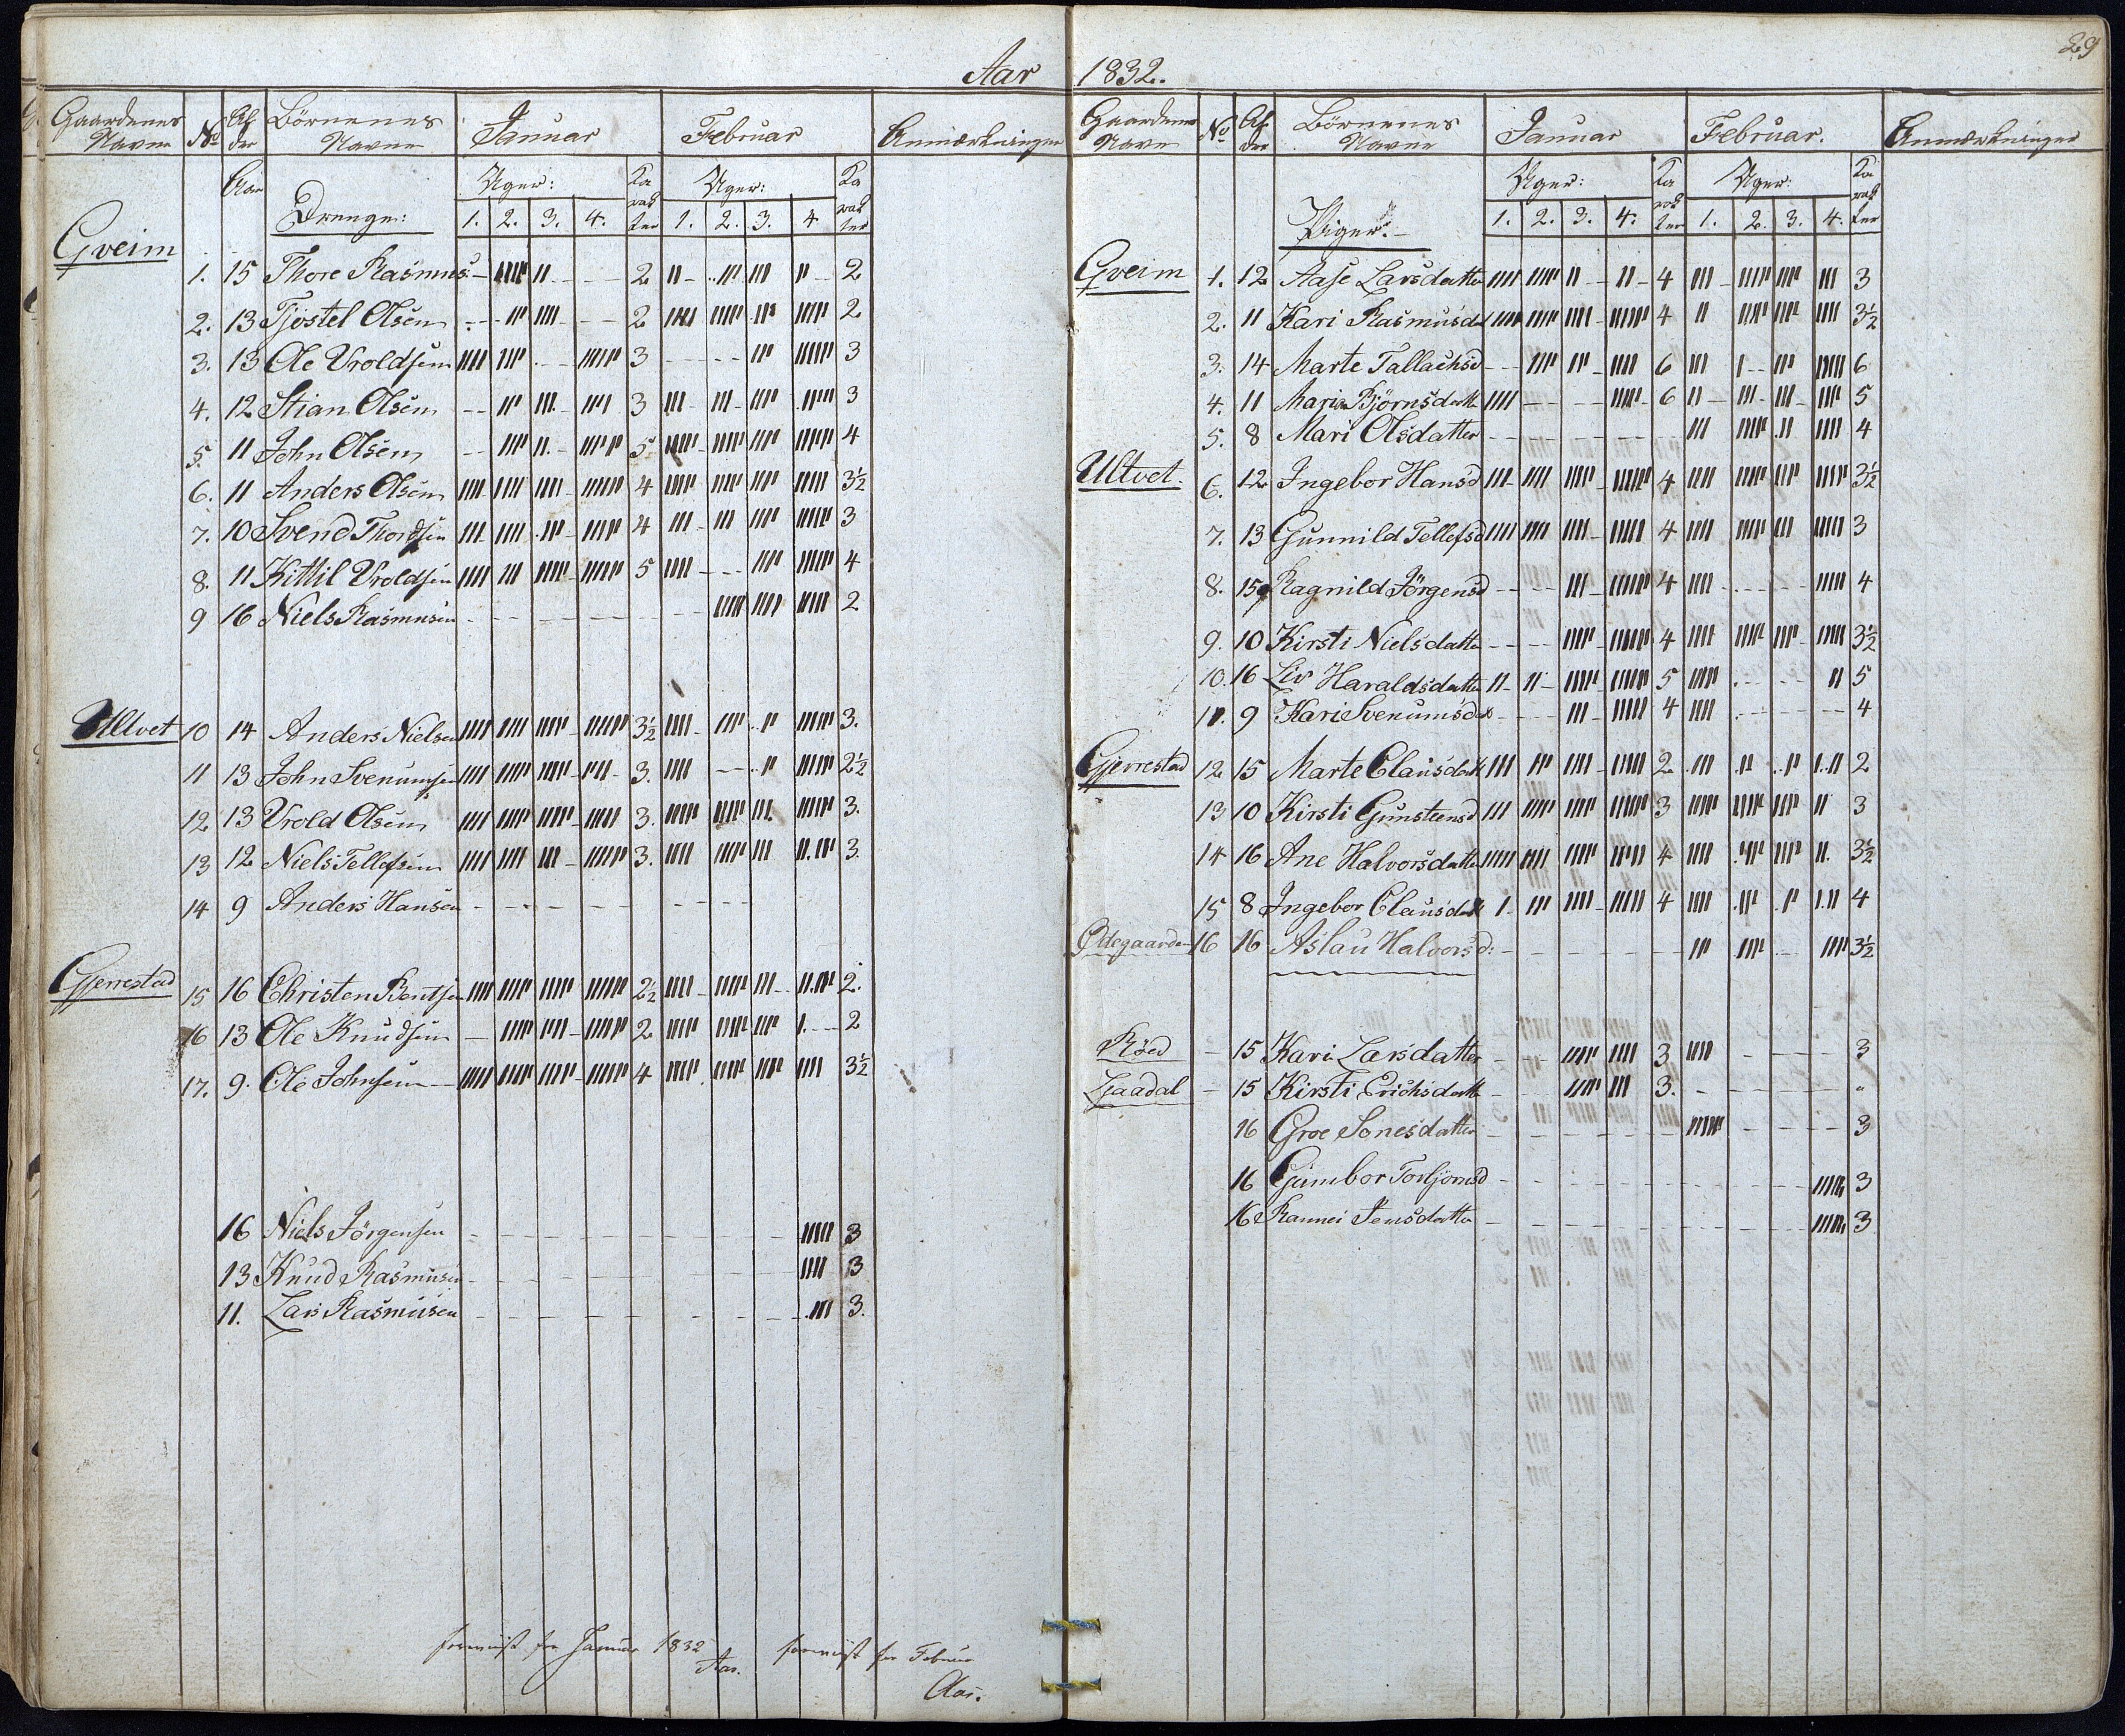 Aar 1832.
29
Gaardenes Navne No Al der Börnenes Navne Januar Februar Anmærkninger
Aar Drenge: Uger: Ka rak ter Uger: Ka rak ter
1. 2. 3. 4. 1. 2. 3. 4
Gveim
1. 15 Thore Rasmus: 2 2
2. 13 Tjöstel Olsen 2 2
3. 13 Ole Vroldsen 3 3
4. 12 Stian Olsen 3 3
5. 11 John Olsen 5 4
6. 11 Anders Olsen 4 3½
7. 10 Svend Thordsen 4 3
8. 11 Kittil Vroldsen 5 4
9 16 Niels Rasmusen 2
Ultvet 10 14 Anders Nielsen 3½ 3.
11 13 John Svenumsen 3. 2½
12 13 Vrold Olsen 3. 3.
13 12 Niels Tellefsen 3. 3.
14 9 Anders Hansen
Gjerrestad 15 16 Christen Bentsen 2½ 2.
16 13 Ole Knudsen 2 2
17. 9. Ole Johnsen 4 3½
16 Niels Jörgensen 3
13 Knud Rasmusen 3
11. Lars Rasmusen 3.
for Januar 1832 for Februar
Aas. Aas.
Gaardenes Navn No Al der Börnenes Navne Januar Februar. Anmærkninger
Piger. Uger: Ka rak ter Uger: Ka rak ter
1. 2. 3. 4. 1. 2. 3. 4.
Gveim 1. 12 Aase Larsdatter 4 3
2. 11 Kari Rasmusd 4 3½
3. 14 Marte Tallachsd 6 6
4. 11 Maria Björnsdatt 6 5
5. 8 Mari Olsdatter 4
Ultvet. 6. 12 Ingebor Hansd 4 3½
7. 13 Gunnild Tellefsd 4 3
8. 15 Ragnild Jörgensd 4 4
9. 10 Kirsti Nielsdatter 4 3½
10. 16 Liv Haraldsdatter 5 5
11. 9 Kari Svenumsdat 4 4
Gjerrestad 12 15 Marte Clausdatt 2 2
13 10 Kirsti Gunsteensd 3 3
14 16 Ane Halvorsdatter 4 3½
15 8 Ingebor Clausdatt 4 4
Ödegaarden 16 16 Aslau Halvorsd: 3½
Röed 15 Kari Larsdatter 3 3
Laadal 15 Kirsti Erichsdatt 3.
16 Groe Sonesdatter 3
16 Gunbor Torbjörnsd 3
16 Rannei Jensdatter 3